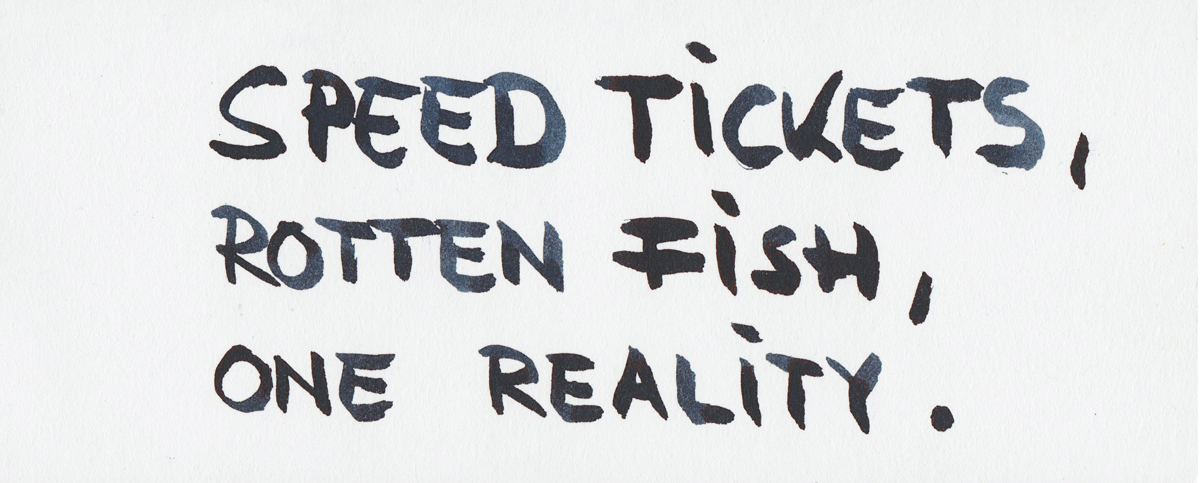 SPEED TiCKETS,
ROTTEN FiSH,
ONE REALiTY.